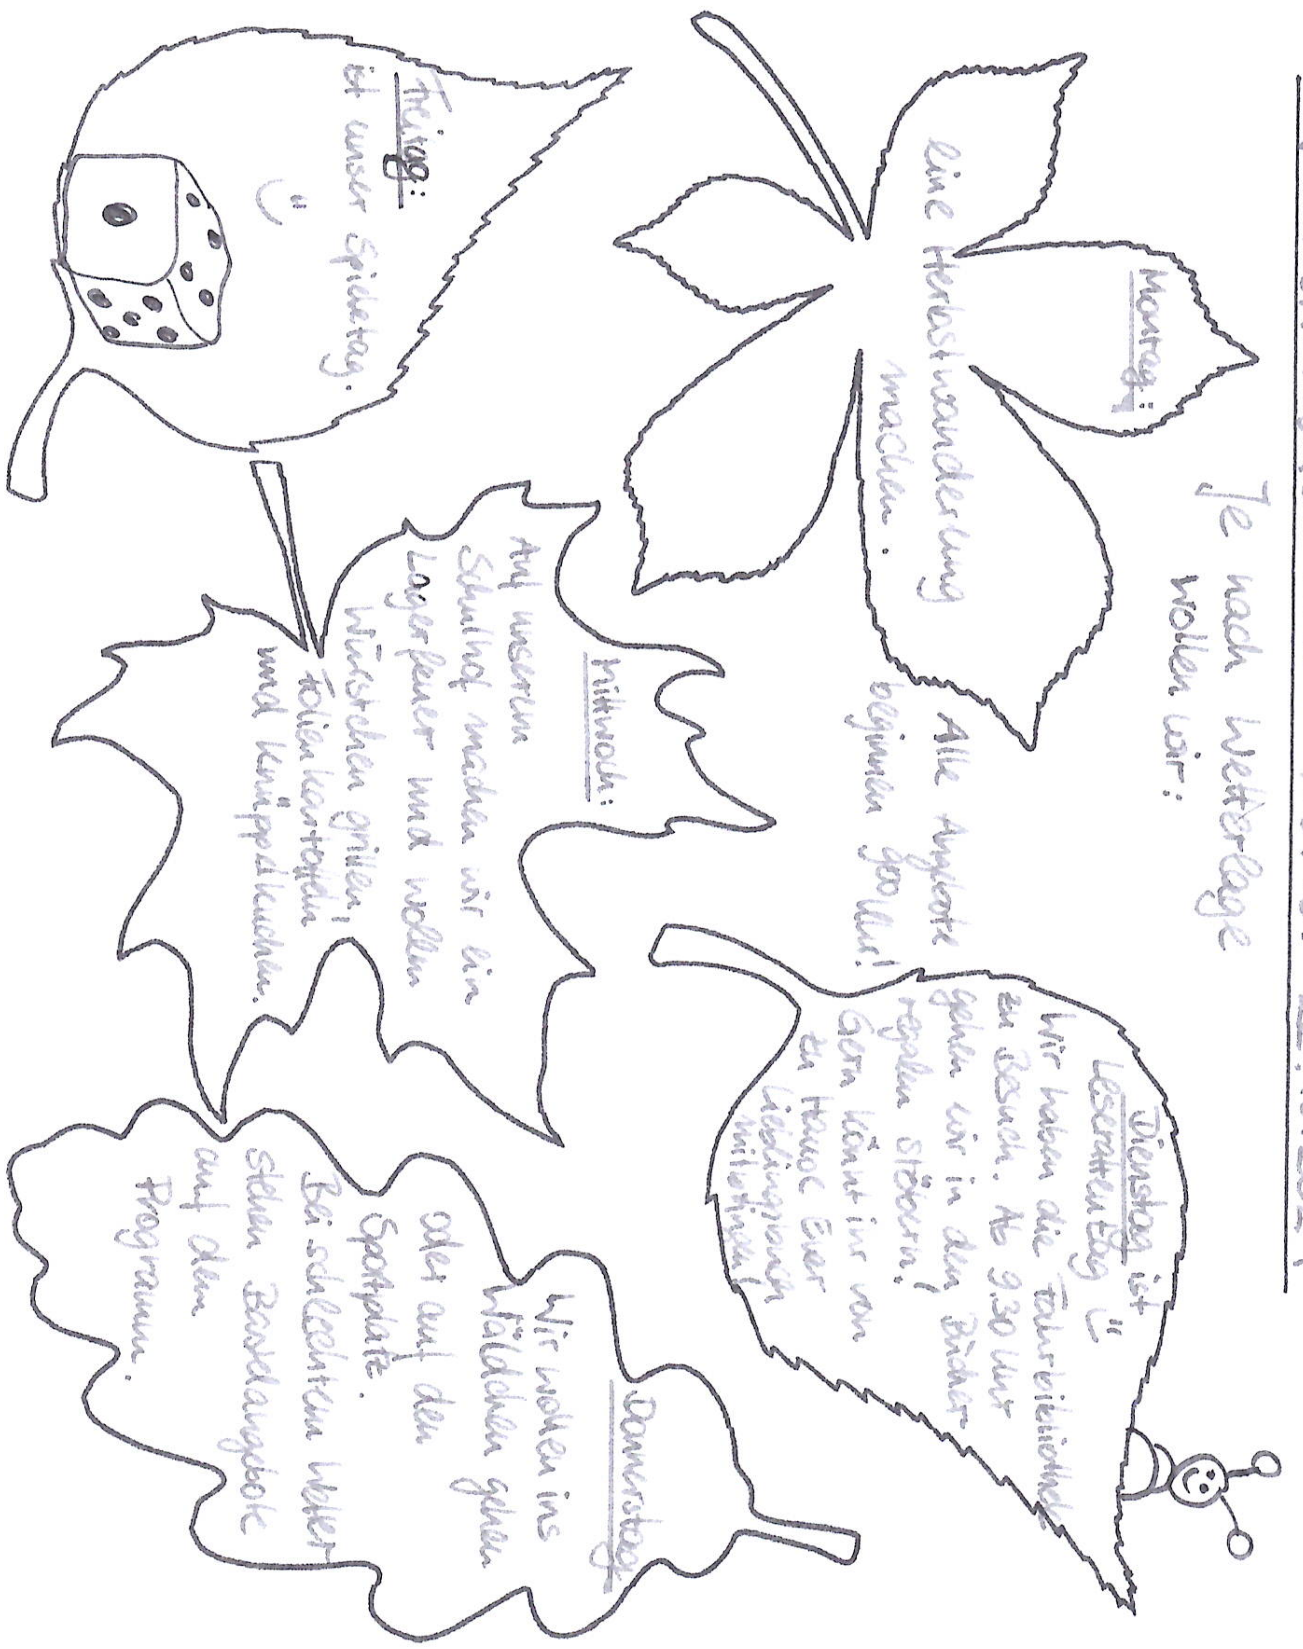 Je nach Wetterlage
wollen wir:
Montag:
eine Herbstwanderung
machen.
Alle Angebote
beginnen 9.00 Uhr!
Dienstag ist
Leserattentag
Wir haben die Fahrbibliothek
zu Besuch. Ab 9.30 Uhr
gehen wir in den Bücher
regalen stöbern!
Gern könnt ihr von
zu Hause Euer
Lieblingsbuch
mitbringen!
Mittwoch:
Auf unserem
Schulhof machen wir ein
Lagerfeuer und wollen
Würstchen grillen,
Folienkartoffeln
und Knüppelkuchen.
Donnerstag
Wir wollen ins
Wäldchen gehen
oder auf den
Sportplatz.
Bei schlechtem Wetter
stehen Bastelangebote
auf dem
Programm.
Freitag:
ist unser Spieletag.